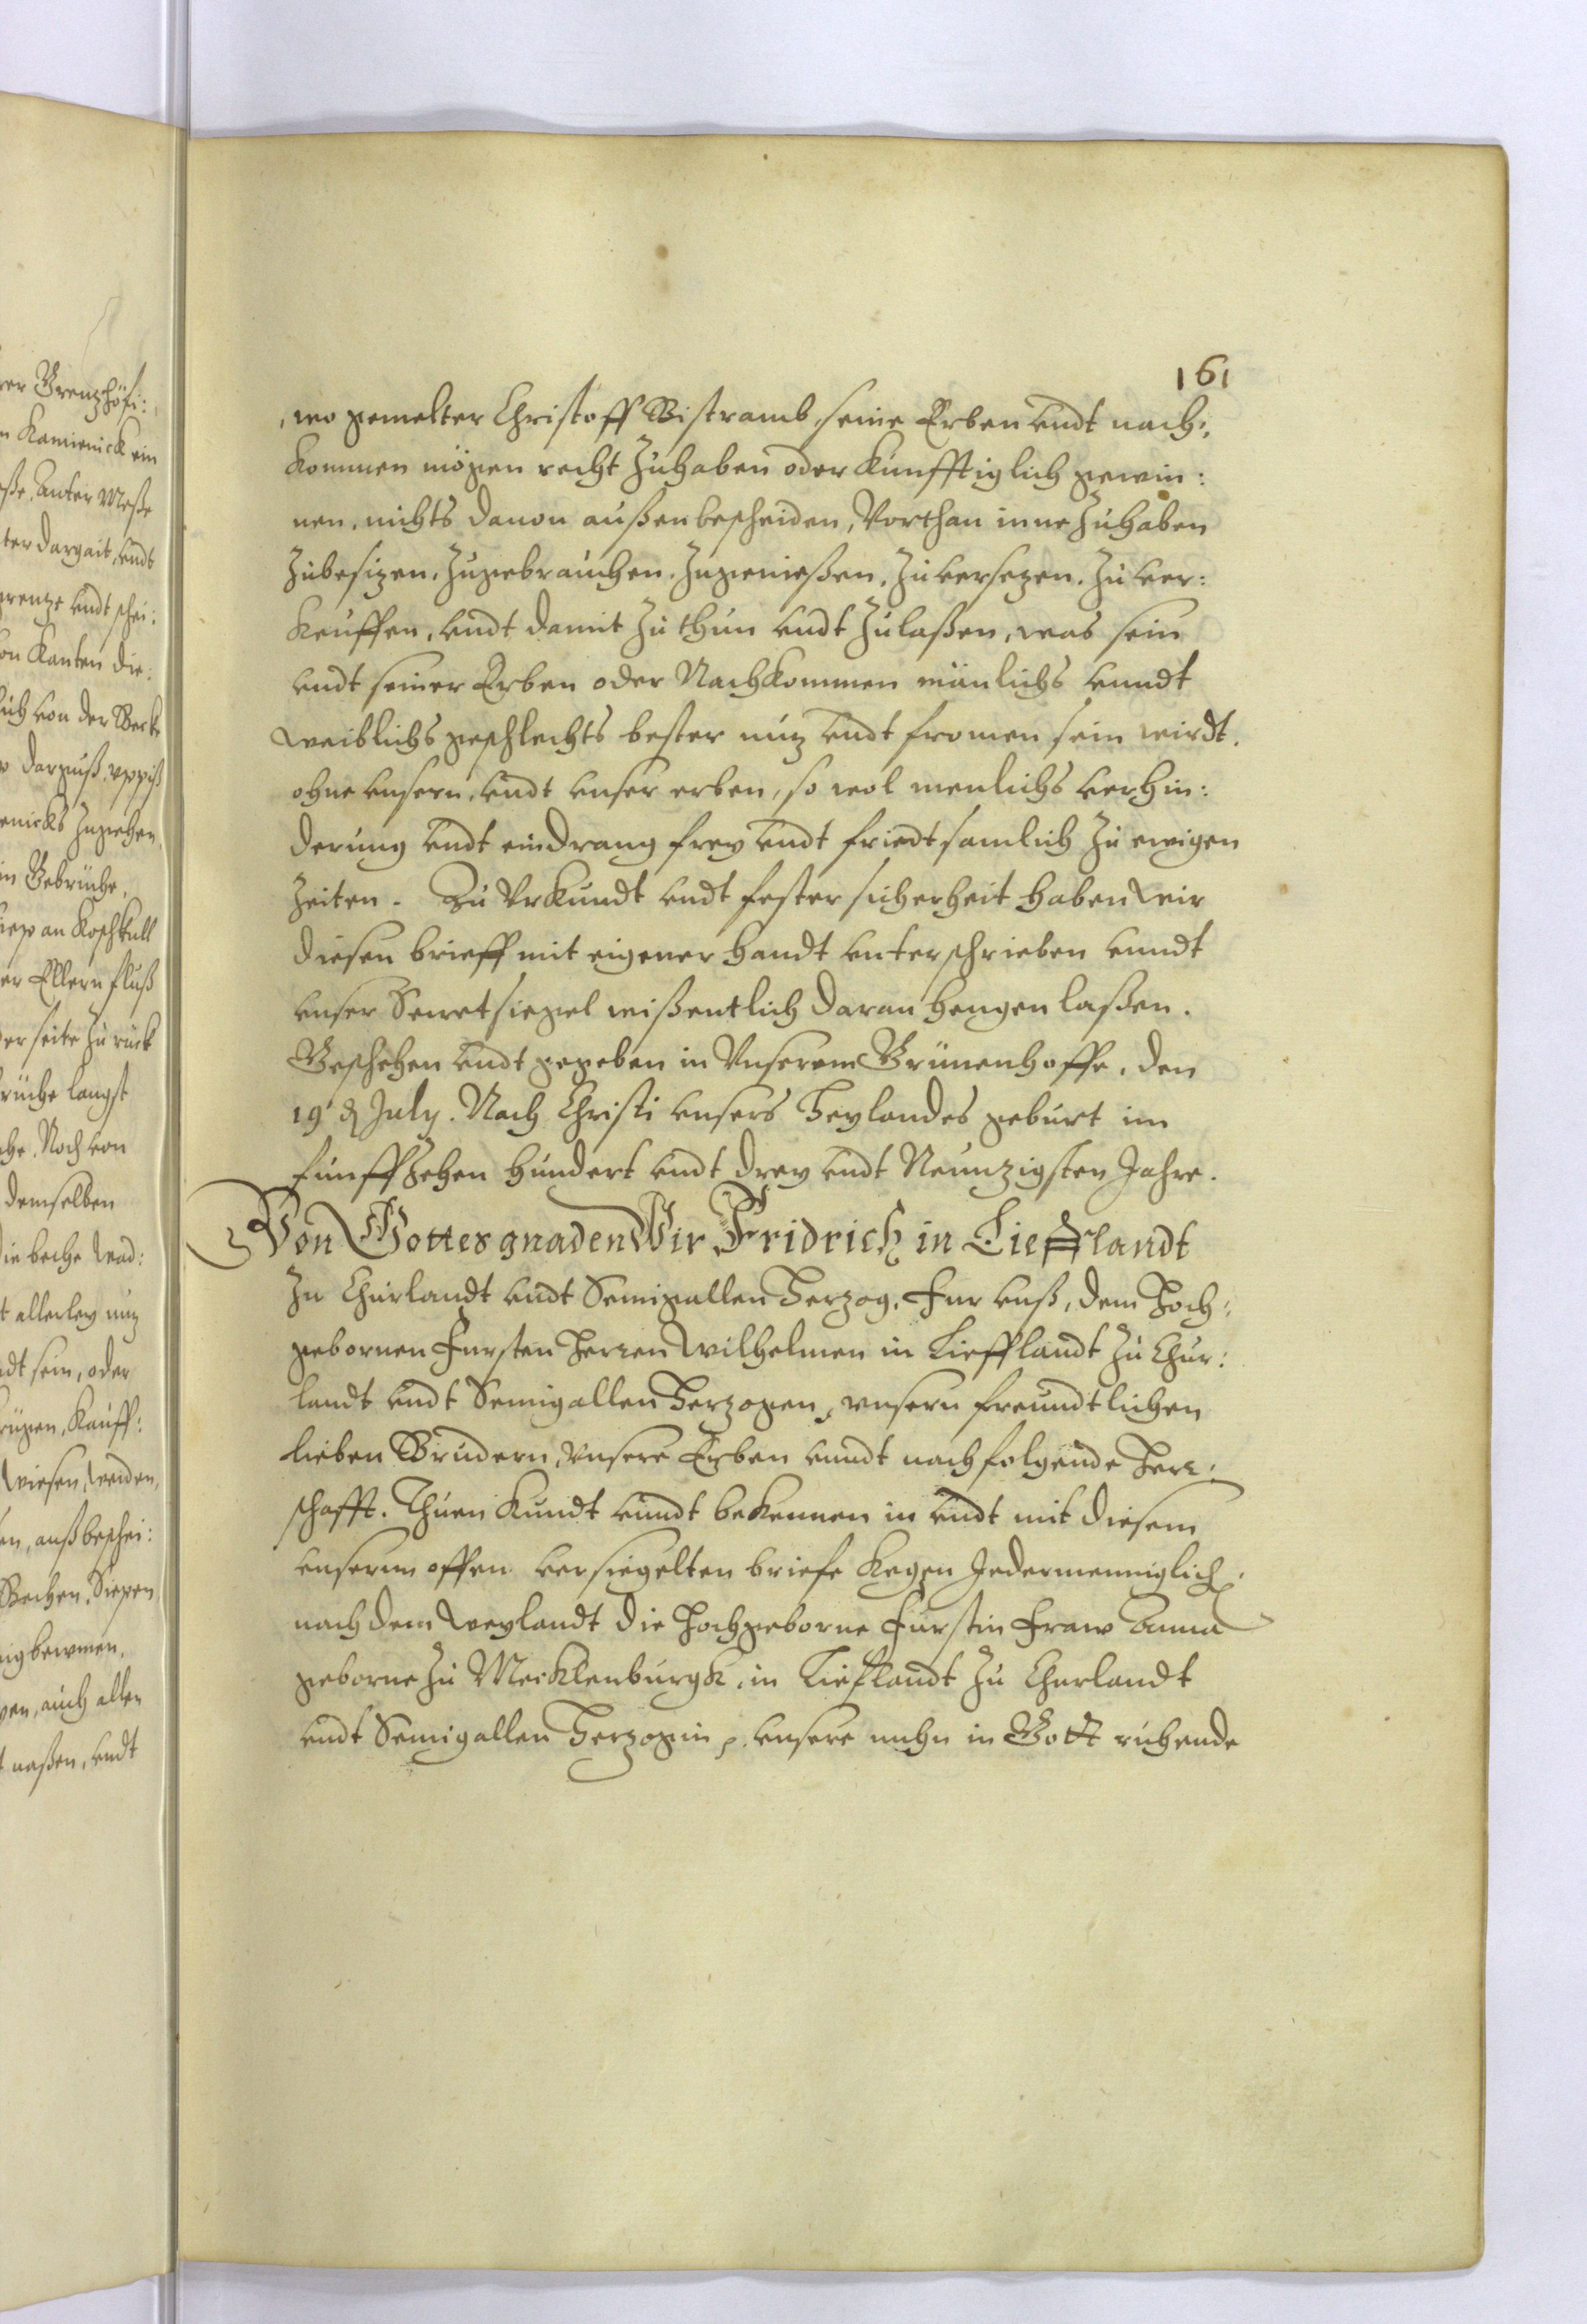 161
wo gemelter Christoff Bistramb, seine Erben vndt nach:
kommen mögen recht Zuhaben oder künfftiglich gewin:
nen, nichts dauon außenbescheiden, Vorthan inne Zuhaben
Zubesizen, Zugebrauchen, Zugenießen, Zuuersezen, Zu ver:
keuffen, vndt damit Zu thun vndt Zulaßen, was sein
vndt seiner Erben oder Nachkommen mänlichs vnndt
weiblichs geschlechts bester nuz vndt fromen sein wirdt.
ohne vnsern, vndt vnser erben, so wol menlichs verhin:
derung vndt eindrang frey vndt friedtsamlich Zu ewigen
Zeiten. Zu Vrkundt vndt fester sicherheit haben wir
diesen brieff mit eigener handt vnterschrieben vnndt
vnser Secretsiegel wißentlich daran hengen laßen.
Geschehen vndt gegeben in Vnserem Grünenhoffe, den
19 July. Nach Christi vnsers Heylandes geburt im
funffzehen hundert vndt drey vndt Neunzigsten Jahre.
Von Gottes gnaden Wir Fridrich in Liefflandt
Zu Churlandt vndt Semigallen Herzog, Fur vnß, dem Hoch:
gebornen Fursten Herren Wilhelmen in Liefflandt Zu Chur:
landt vndt Semigallen Herzogen, vnsern freundtlichen
lieben Brudern, vnsere Erben vnndt nachfolgende Herr:
schafft. Thuen kundt vnndt bekennen in vndt mit diesem
vnserm offen versiegelten briefe kegen Jedermenniglich.
nach dem weylandt die Hochgeborne Furstin Fraw Anna
geborne Zu Mecklenburgk, in Lieflandt Zu Churlandt
vndt Semigallen Herzogin p. vnsere nuhn in Gott ruhende
er Grenzhöfi:
n Kamienick ein
ße, anter Meße
ter dargait, vndt
grenze vndt schei:
on Kanten die:
lich von der Beck
enicks Zugehen
in Gebrüche,
siep an Koschkull
er Ellern fluß
der seite Zu rück
brüche langst
che. Noch von
demselben
die beche wad:
t allerley nuz
ndt sein, oder
krügen, Kauff:
wiesen, weiden,
en, auß beschei:
Bechen, Siepen
nigbewmen,
gen, auch allen
t naßen, vndt